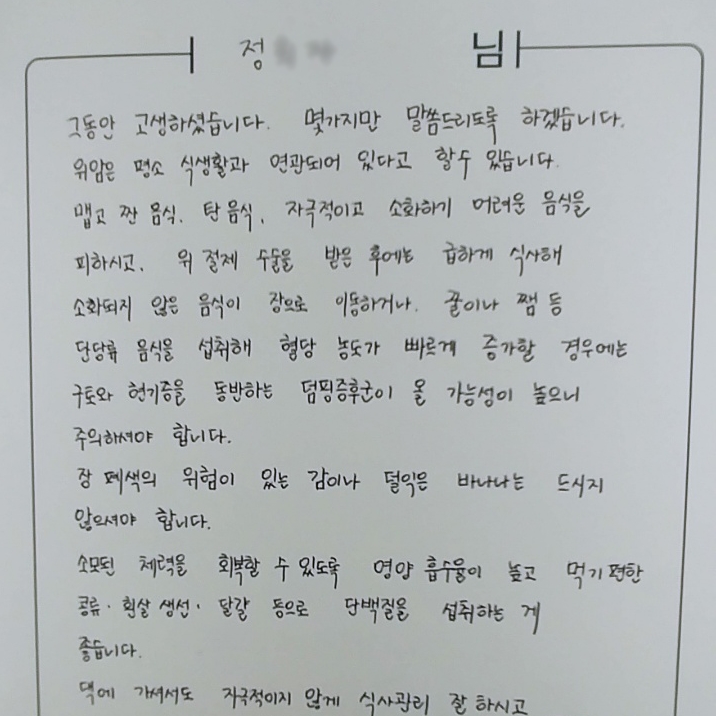 정 님
그동안 고생하셨습니다. 몇가지만 말씀드리도록 하겠습니다.
위암은 평소 식생활과 연관되어 있다고 할수 있습니다.
맵고 짠 음식, 탄 음식, 자극적이고 소화하기 어려운 음식을
피하시고, 위 절제 수술을 받은 후에는 급하게 식사해
소화되지 않은 음식이 장으로 이동하거나, 꿀이나 쨈 등
단당류 음식을 섭취해 혈당 농도가 빠르게 증가할 경우에는
구토와 현기증을 동반하는 덤핑증후군이 올 가능성이 높으니
주의하셔야 합니다.
장 폐색의 위험이 있는 감이나 덜익은 바나나는 드시지
않으셔야 합니다.
소모된 체력을 회복할 수 있도록 영양 흡수율이 높고 먹기 편한
콩류·흰살 생선· 달걀 등으로 단백질을 섭취하는 게
좋습니다.
댁에 가셔서도 자극적이지 않게 식사관리 잘 하시고